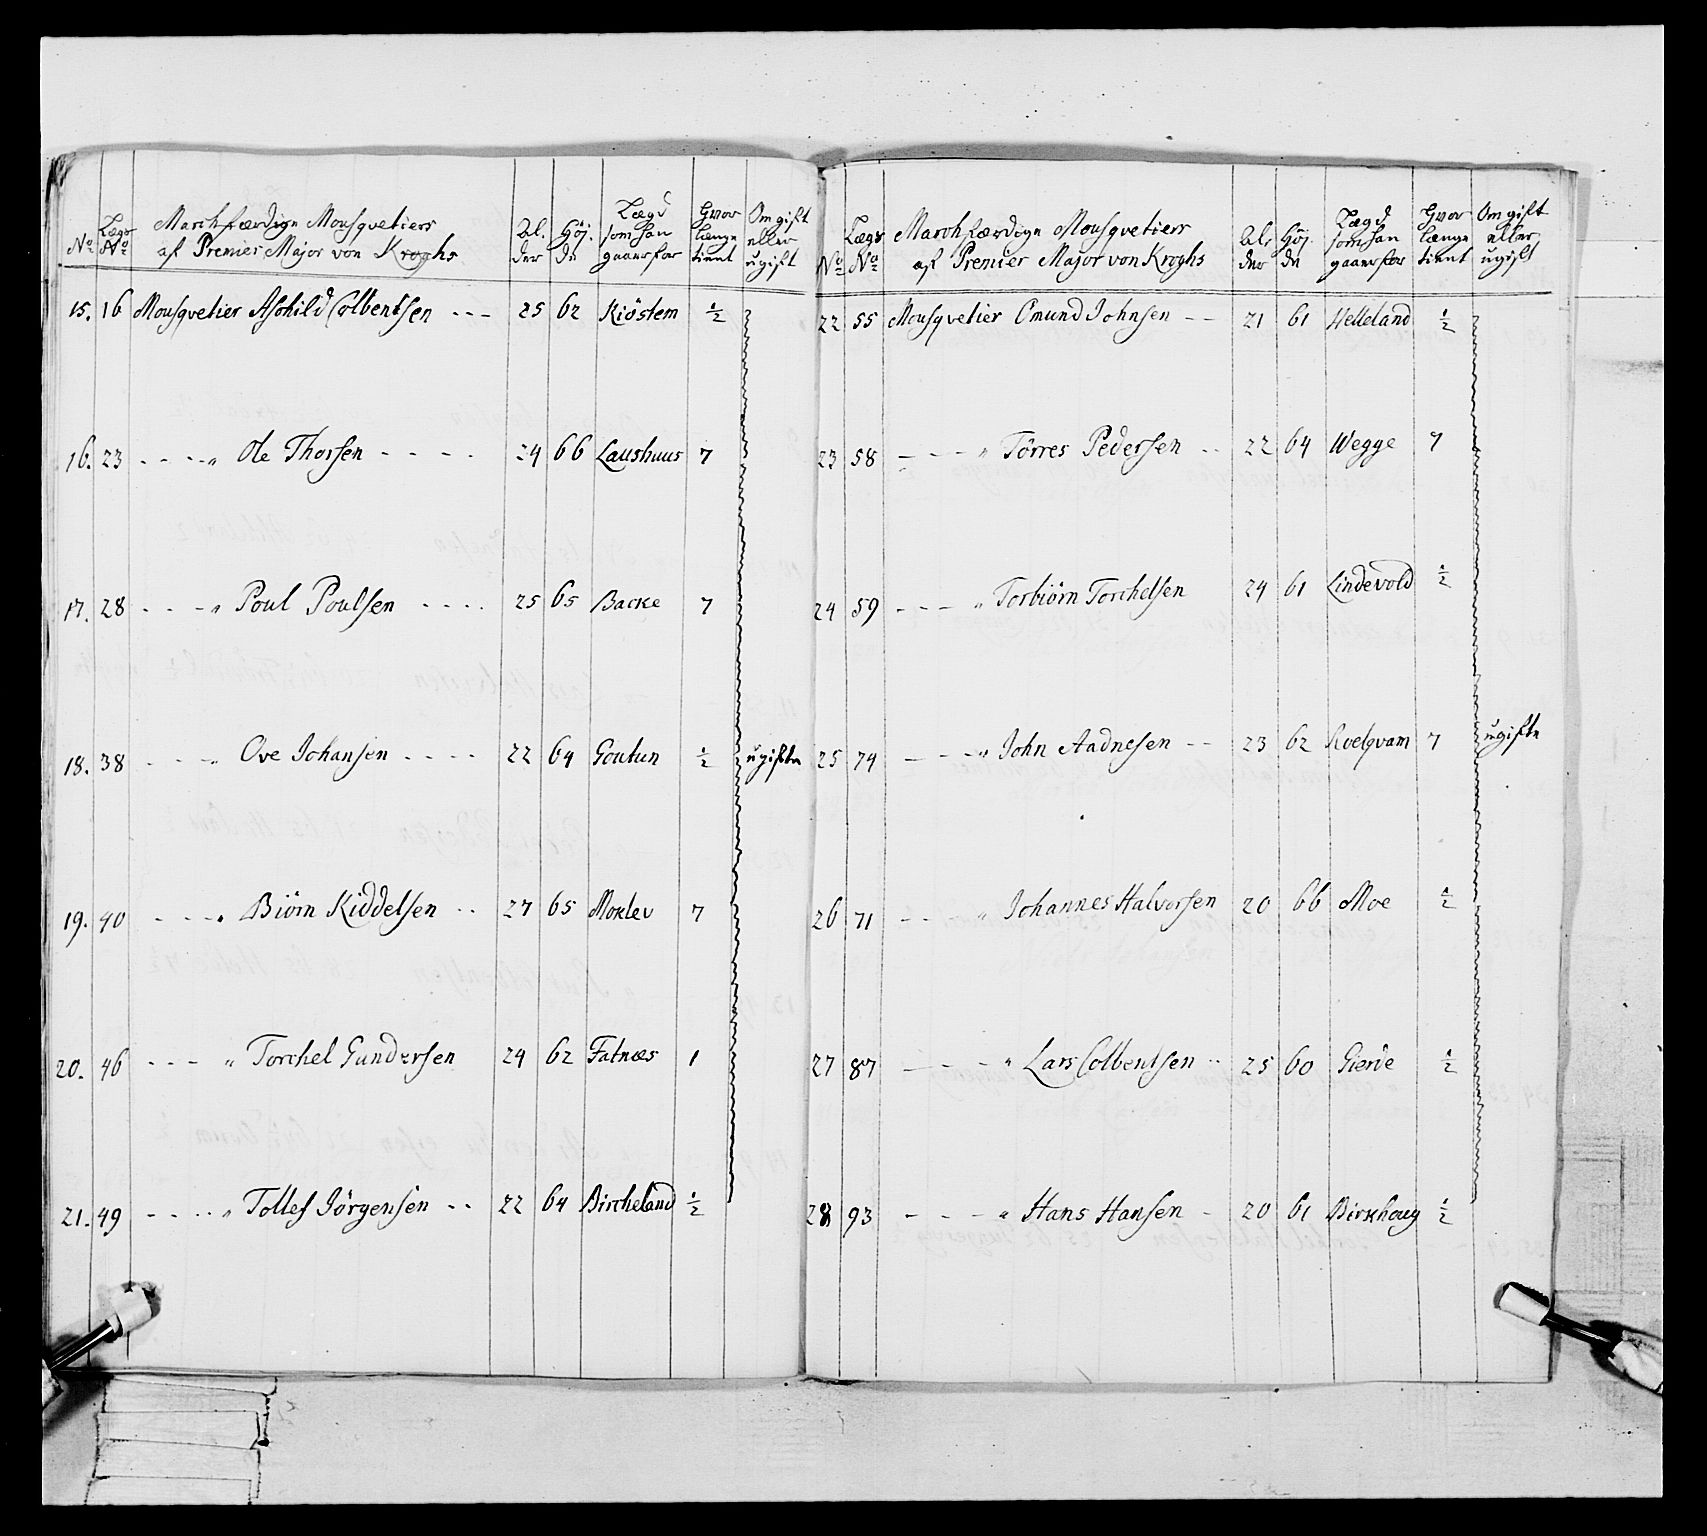 No | Lægs No | Marchfærdige Mousqvetiers af Premier Major von Kroghs | Al. der | Høj. de | Lægd som han gaaer for | Hvor længe tient | Om gift eller ugift
15. 16 Mousqvetier Aschild Colbentsen - - - 25 62 Kiöstem ½
16. 23 - - - - " Ole Thorsen - - - - 24 66 Laushuus 7
17. 28 - - - - " Poul Poulsen - - - - 25 65 Backe 7
18. 38 - - - - " Ove Johansen - - - - 22 64 Goutun ½ ugifte
19. 40 - - - - " Biörn Kiddelsen - - 27 65 Moklev 7
20. 46 - - - " Torchel Gundersen 24 62 Fatnæs 1
21. 49 - - - - " Tollef Jörgensen - - 22 64 Bircheland ½
No | Lægs No | Marchfærdige Mousqvetiers af Premier Major von Kroghs | Al. der | Høj. de | Lægd som han gaaer for | Hvor længe tient | Om gift eller ugift
22 55 Mousqvetier Omund Johnsen - - 21 61 Helleland ½
23 58 - - - " Törres Pedersen - - 22 64 Wegge 7
24 59 - - - " Torbiörn Torchelsen 24 61 Lindevold ½
25 74 - - - " John Aadnesen - - 23 62 Roelqvam 7 ugifte
26 71 - - - " Johannes Halvorsen 20 66 Moe ½
27 87 - - - " Lars Colbentsen - - 25 60 Gierie ½
28 93 - - - " Hans Hansen - 20 61 Birkhoug ½